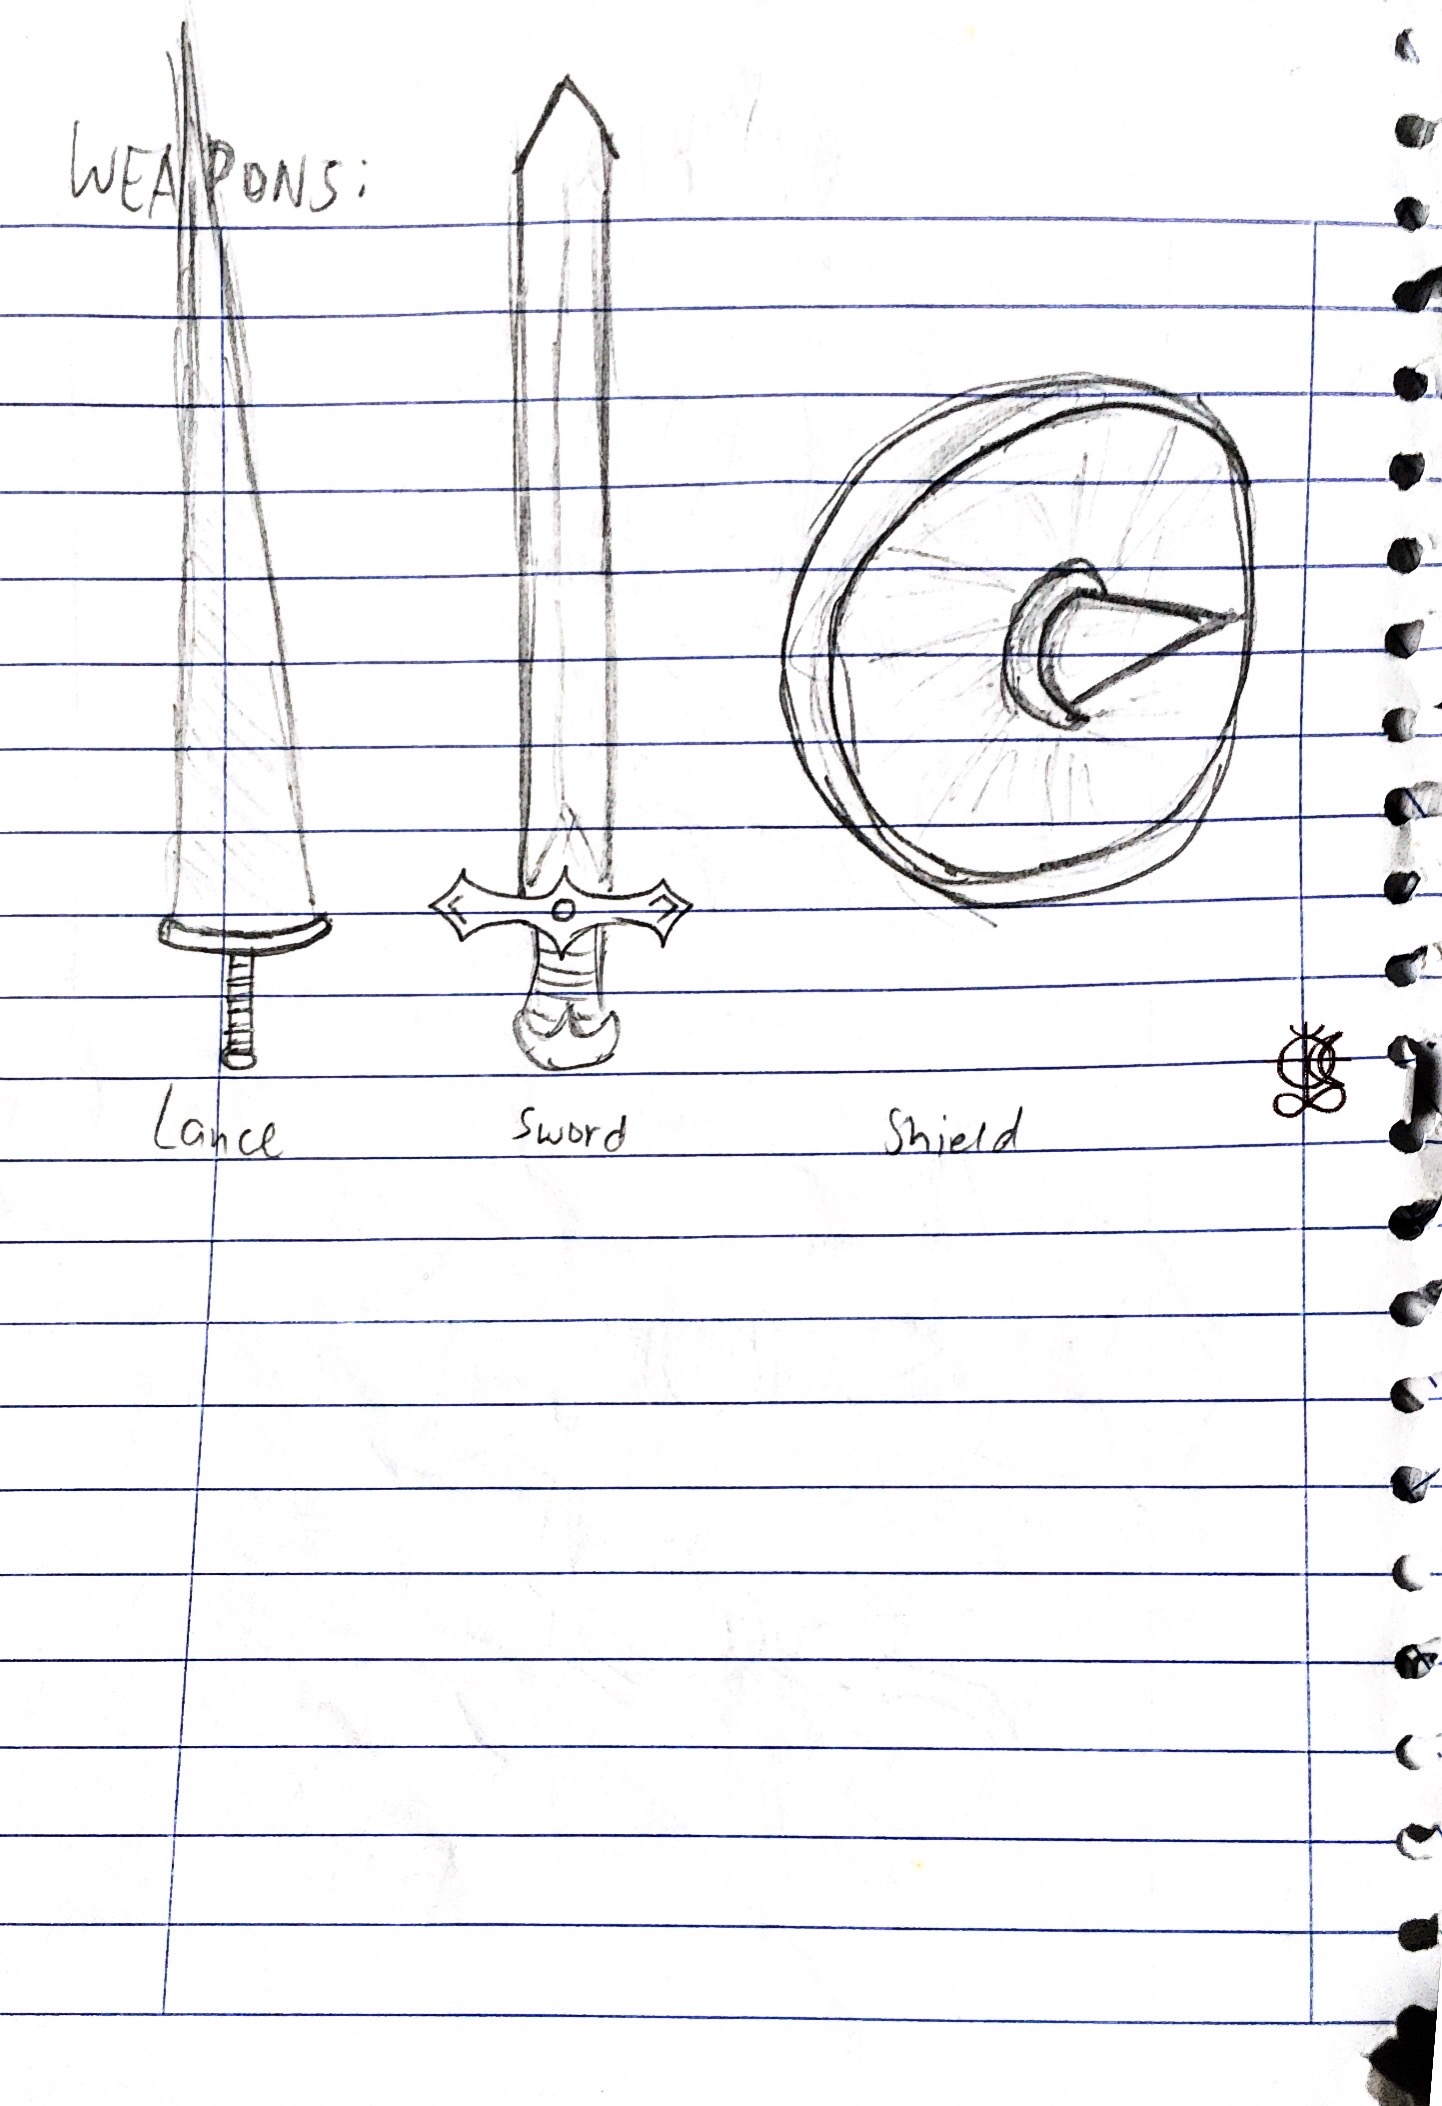 WEAPONS:
Lance
Sword
Shield